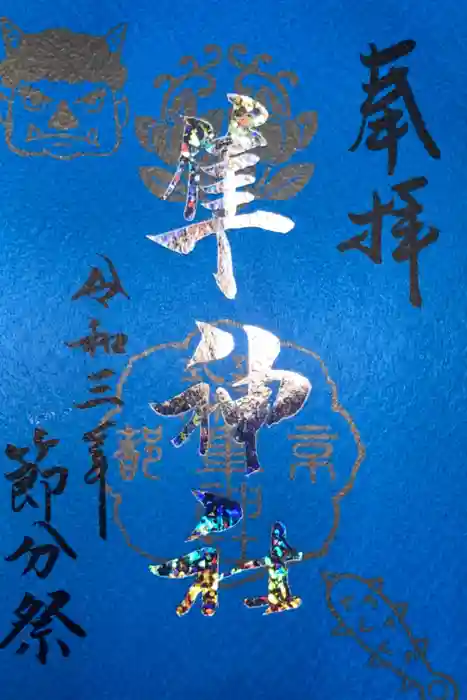 奉拝
隼神社
京都
令和三年
節分祭